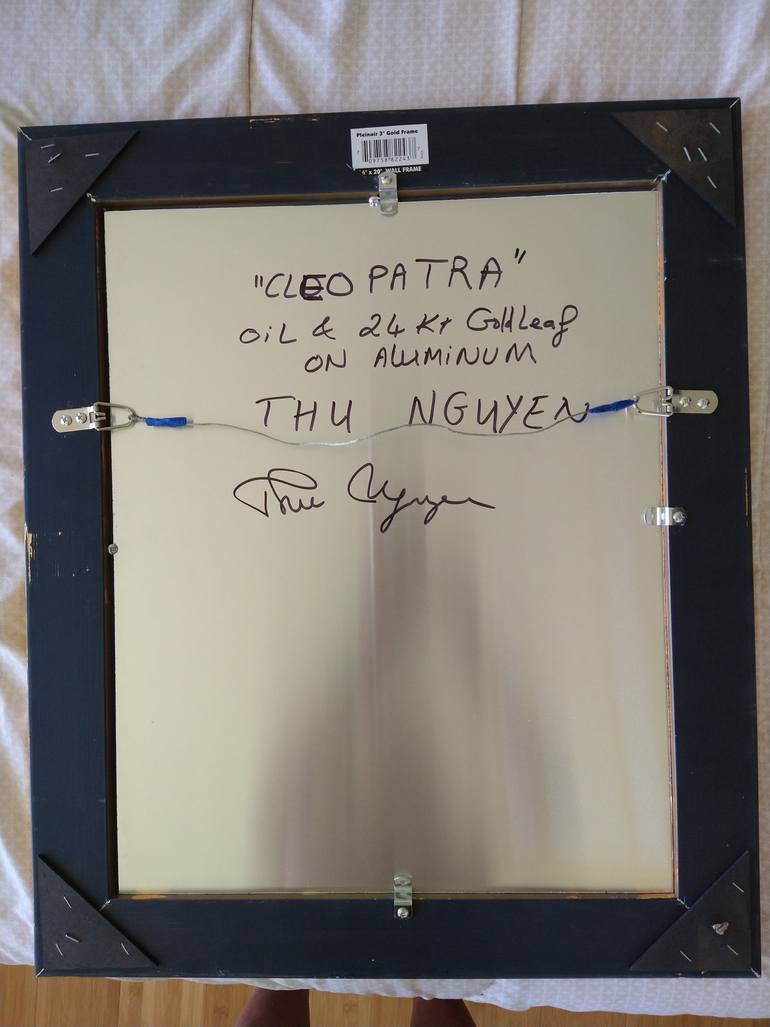 Pleinair 3" Gold Frame
6" x 20" WALL FRAME
"CLEOPATRA"
OiL & 24 Kt Gold Leaf
ON ALUMiNUM
THU NGUYEN
Thu Nguyen